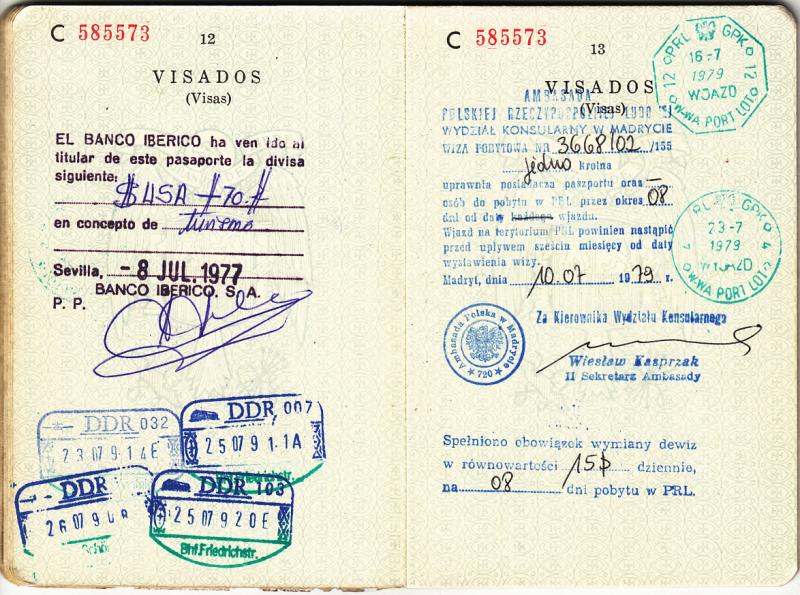 C 585573
12
VISADOS
(Visas)
EL BANCO IBERICO ha ven ido al
titular de este pasaporte la divisa
siguiente:
$USA #70.#
en concepto de turismo
Sevilla, -8 JUL. 1977
BANCO IBERICO, S. A.
P. P.
DDR 032
23 07 9 14 E
DDR 007
25 07 9 1 1A
DDR
26 07 9
DDR 103
25 07 9 20E
Bhf.Friedrichstr.
C 585573
13
VISADOS
(Visas)
AMBASADA
POLSKIEJ RZECZYPOSPOLITEJ LUDOWEJ
WYDZIAŁ KONSULARNY W MADRYCIE
WIZA POBYTOWA NR 3668/02/155
jedno krotna
uprawnia posiadacza paszportu oraz —
osób do pobytu w PRL przez okres 08
dni od daty każdego wjazdu.
Wjazd na terytorium PRL powinien nastąpić
przed upływem sześciu miesięcy od daty
wystawienia wizy.
Madryt, dnia 10.07 1979 r.
Za Kierownika Wydziału Konsularnego
Wiesław Kasprzak
II Sekretarz Ambasady
Ambasada Polska w Madrycie
720
Spełniono obowiązek wymiany dewiz
w równowartości 15$ dziennie,
na 08 dni pobytu w PRL.
PRL GPK
12 12
16-7
1979
WJAZD
W-WA PORT LOT
PRL GPK
4 4
23-7
1979
W-WA PORT LOT